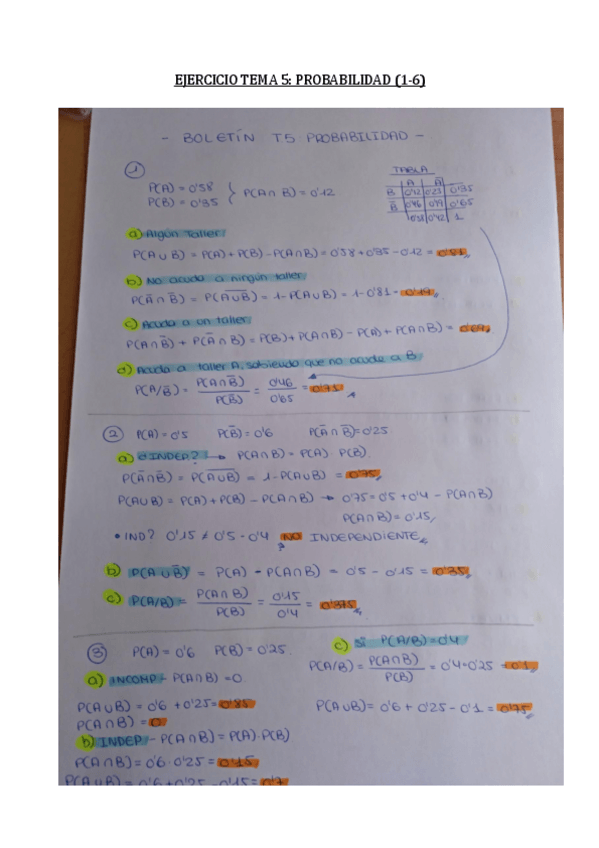 EJERCICIO TEMA 5: PROBABILIDAD (1-6)
- BOLETÍN T5 PROBABILIDAD -
①
P(A) = 0'58
P(B) = 0'35 } P(A∩B) = 0'12
TABLA
A Ā
B 0'12 0'23 0'35
B̄ 0'46 0'19 0'65
0'58 0'42 1
a) Algún Taller
P(A∪B) = P(A) + P(B) - P(A∩B) = 0'58 + 0'35 - 0'12 = 0'81
b) No acuda a ningún taller
P(Ā∩B̄) = P(A∪B)‾ = 1 - P(A∪B) = 1 - 0'81 = 0'19
c) Acuda a un taller
P(A∩B̄) + P(Ā∩B) = P(B) + P(A∩B) - P(A) + P(A∩B) = 0'69
d) Acuda a taller A, sabiendo que no acude a B
P(A/B̄) = P(A∩B̄) / P(B̄) = 0'46 / 0'65 = 0'71
② P(A) = 0'5 P(B̄) = 0'6 P(Ā∩B̄) = 0'25
a) ¿INDEP? → P(A∩B) = P(A) · P(B).
P(Ā∩B̄) = P(A∪B)‾ = 1 - P(A∪B) = 0'75
P(A∪B) = P(A) + P(B) - P(A∩B) → 0'75 = 0'5 + 0'4 - P(A∩B)
P(A∩B) = 0'15
• IND? 0'15 ≠ 0'5 - 0'4 NO INDEPENDIENTE
?
b) P(A∪B̄) = P(A) - P(A∩B) = 0'5 - 0'15 = 0'35
c) P(A/B) = P(A∩B) / P(B) = 0'15 / 0'4 = 0'375
③ P(A) = 0'6 P(B) = 0'25.
a) INCOMP - P(A∩B) = 0.
P(A∪B) = 0'6 + 0'25 = 0'85
P(A∩B) = 0
b) INDEP - P(A∩B) = P(A) · P(B)
P(A∩B) = 0'6 · 0'25 = 0'15
P(A∪B) = 0'6 + 0'25 - 0'15 = 0'7
c) Si P(A/B) = 0'4
P(A/B) = P(A∩B) / P(B) = 0'4 · 0'25 = 0'1
P(A∪B) = 0'6 + 0'25 - 0'1 = 0'75